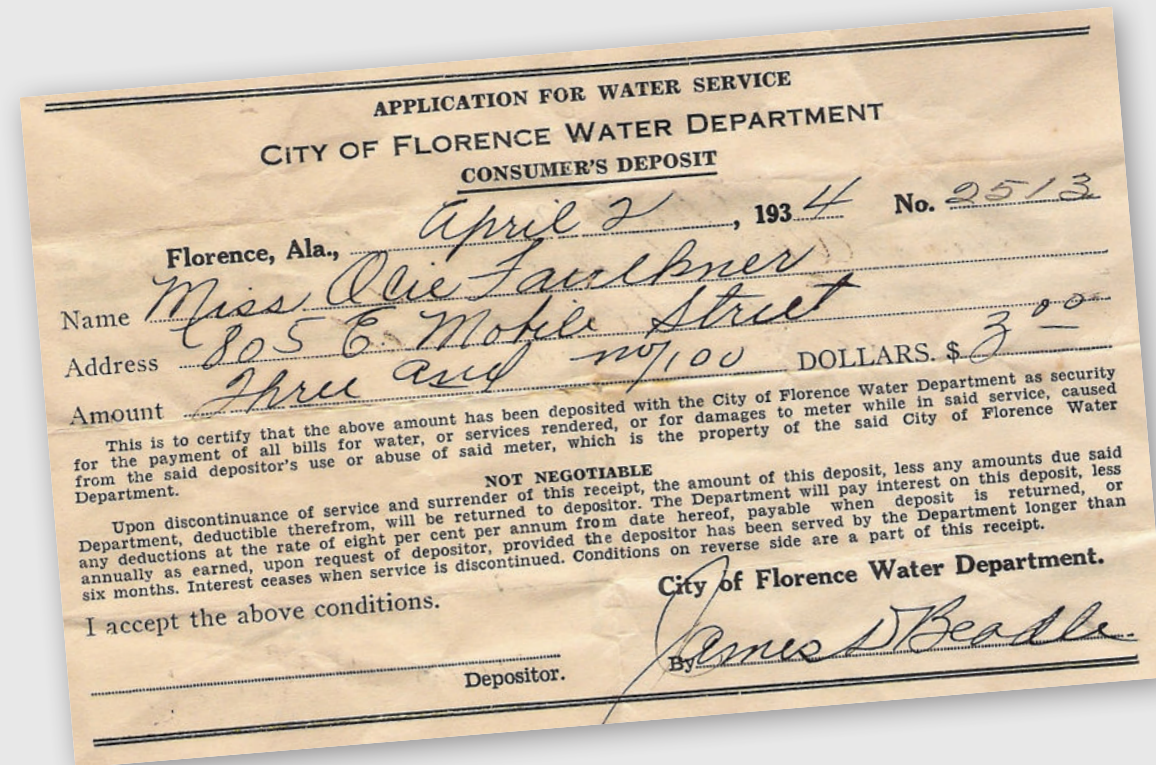 APPLICATION FOR WATER SERVICE
CITY OF FLORENCE WATER DEPARTMENT
CONSUMER'S DEPOSIT
Florence, Ala., April 2, 1934 No. 2513
Name Miss Olie Faulkner
Address 805 E. Mobile Street
Amount Three and no/100 DOLLARS. $ 3 00
This is to certify that the above amount has been deposited with the City of Florence Water Department as security
for the payment of all bills for water, or services rendered, or for damages to meter while in said service, caused
from the said depositor's use or abuse of said meter, which is the property of the said City of Florence Water
Department.
NOT NEGOTIABLE
Upon discontinuance of service and surrender of this receipt, the amount of this deposit, less any amounts due said
Department, deductible therefrom, will be returned to depositor. The Department will pay interest on this deposit, less
any deductions at the rate of eight per cent per annum from date hereof, payable when deposit is returned, or
annually as earned, upon request of depositor, provided the depositor has been served by the Department longer than
six months. Interest ceases when service is discontinued. Conditions on reverse side are a part of this receipt.
I accept the above conditions.
City of Florence Water Department.
Depositor.
By James D Beadle